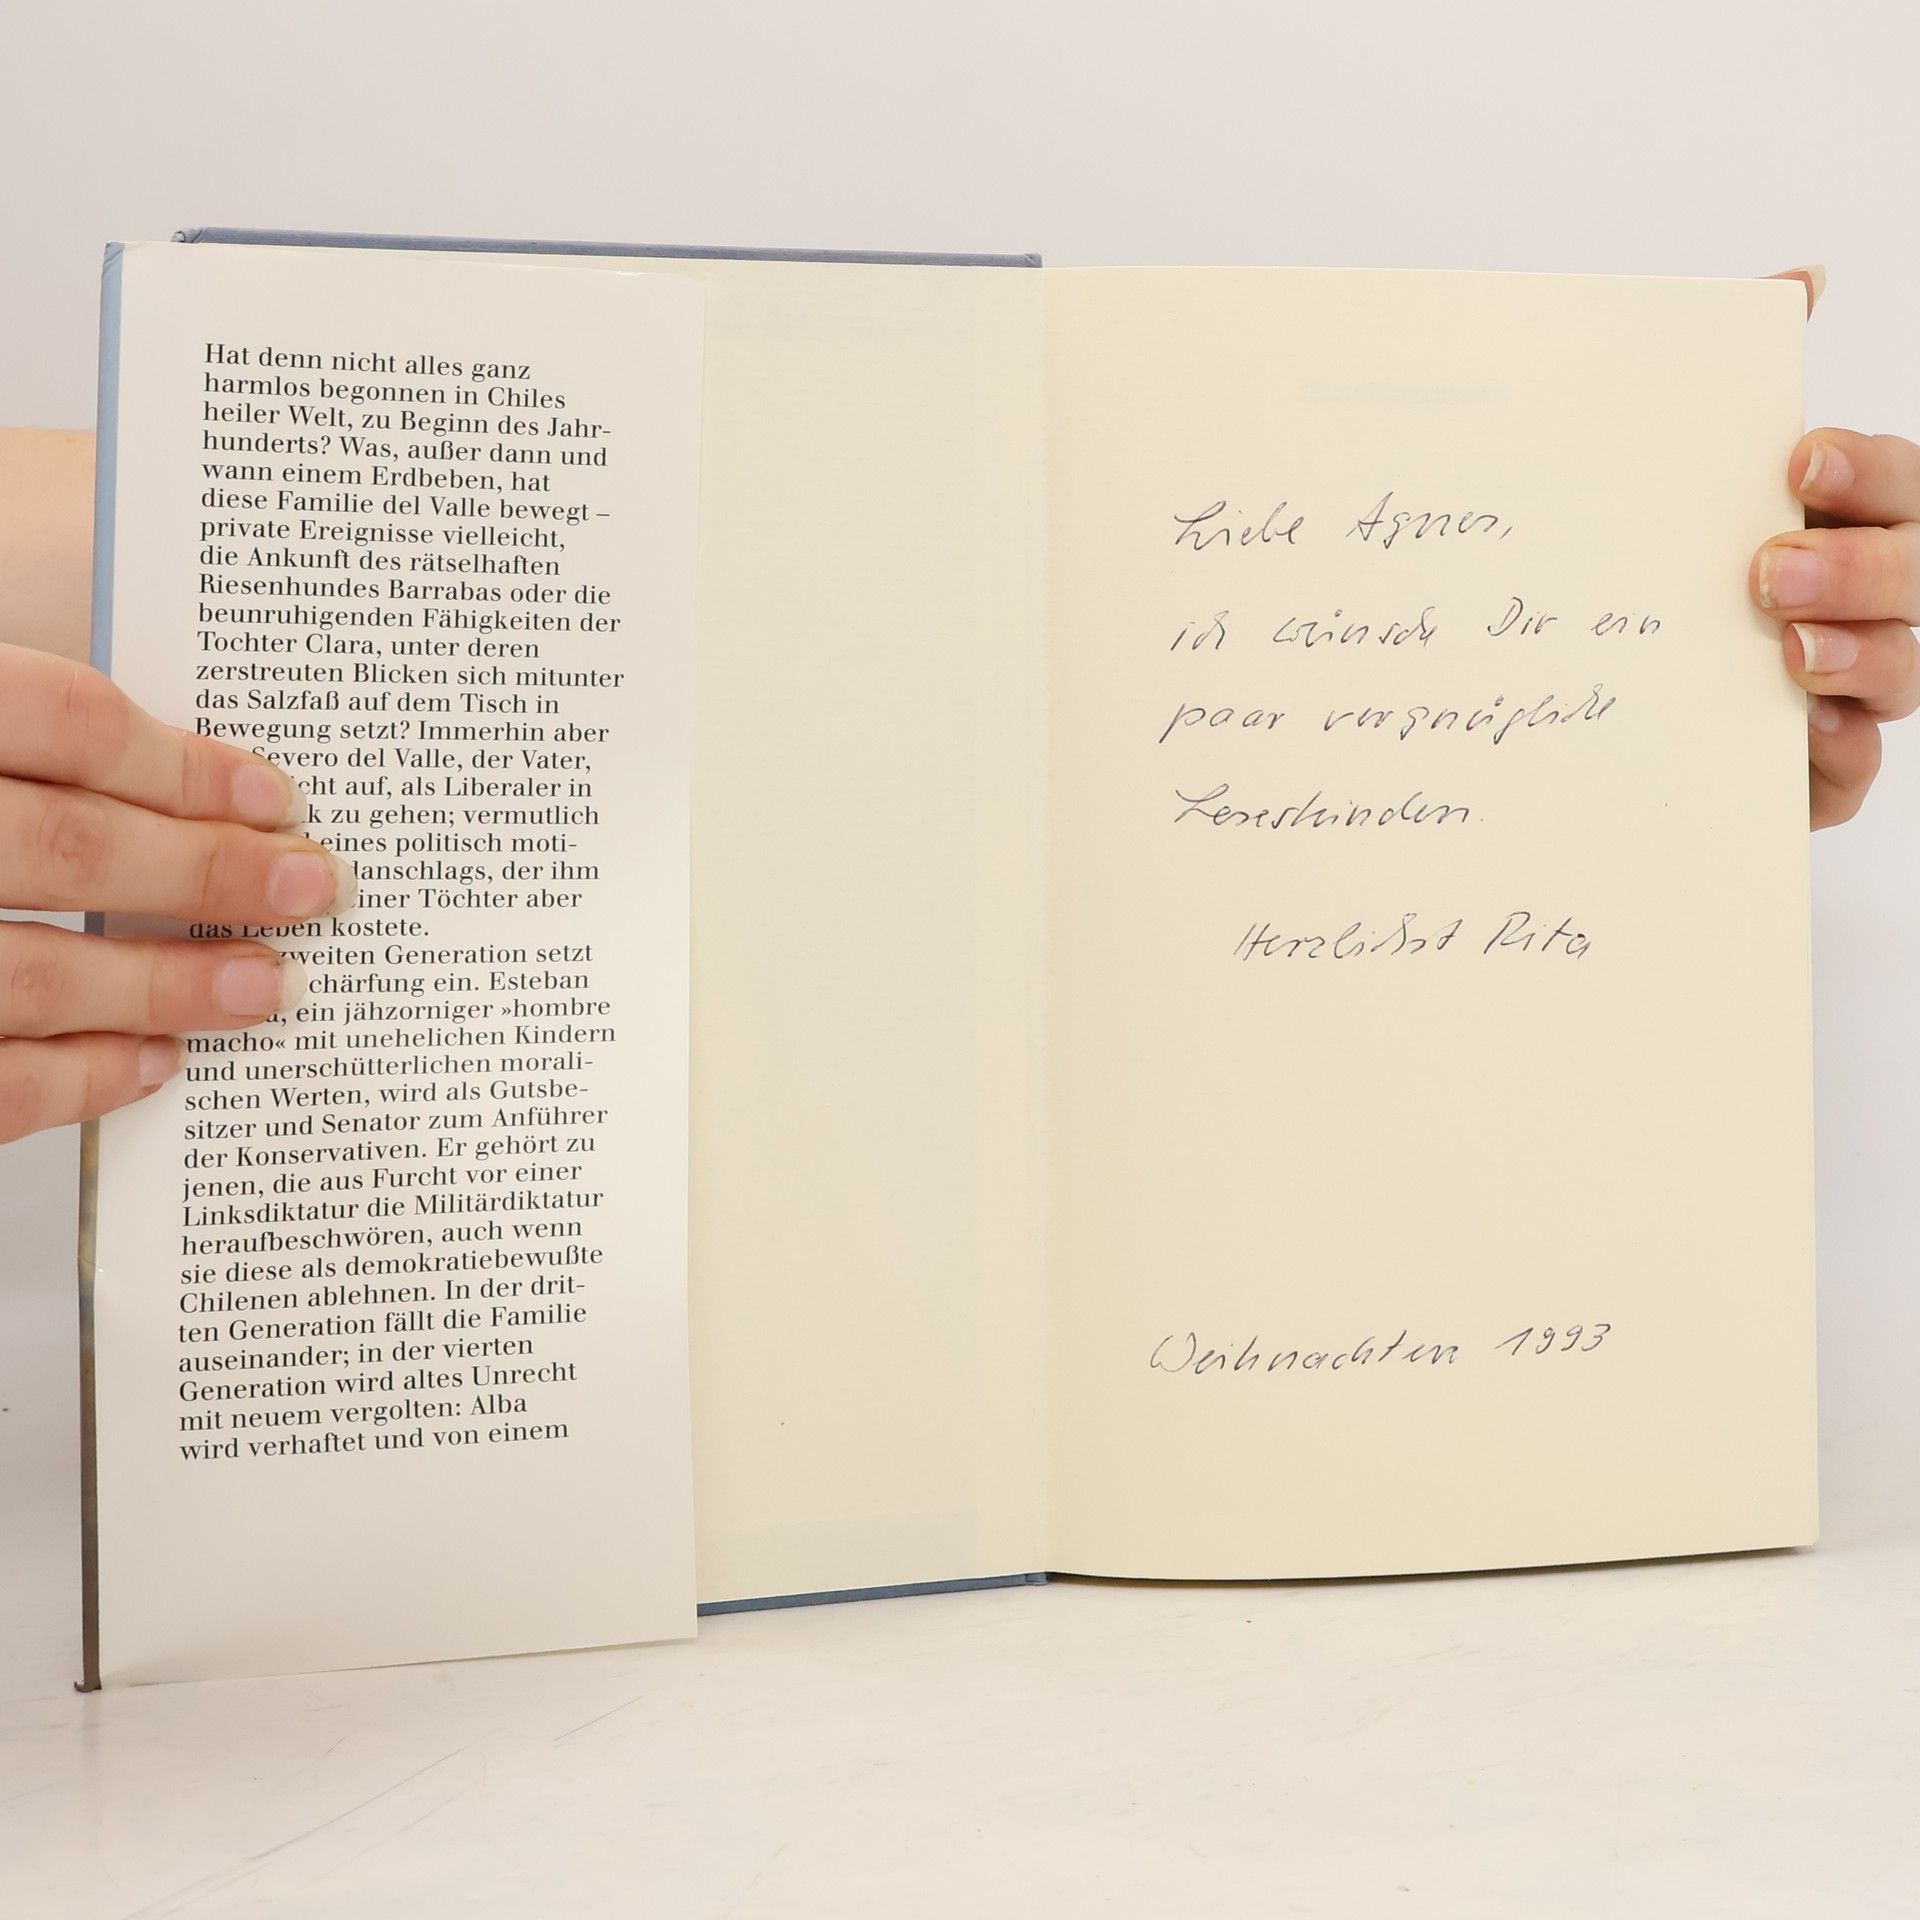 Hat denn nicht alles ganz
harmlos begonnen in Chiles
heiler Welt, zu Beginn des Jahr-
hunderts? Was, außer dann und
wann einem Erdbeben, hat
diese Familie del Valle bewegt –
private Ereignisse vielleicht,
die Ankunft des rätselhaften
Riesenhundes Barrabas oder die
beunruhigenden Fähigkeiten der
Tochter Clara, unter deren
zerstreuten Blicken sich mitunter
das Salzfaß auf dem Tisch in
Bewegung setzt? Immerhin aber
Severo del Valle, der Vater,
auf, als Liberaler in
zu gehen; vermutlich
eines politisch moti-
der ihm
Töchter aber
das Leben kostete.
zweiten Generation setzt
ein. Esteban
ein jähzorniger »hombre
macho« mit unehelichen Kindern
und unerschütterlichen morali-
schen Werten, wird als Gutsbe-
sitzer und Senator zum Anführer
der Konservativen. Er gehört zu
jenen, die aus Furcht vor einer
Linksdiktatur die Militärdiktatur
heraufbeschwören, auch wenn
sie diese als demokratiebewußte
Chilenen ablehnen. In der drit-
ten Generation fällt die Familie
auseinander; in der vierten
Generation wird altes Unrecht
mit neuem vergolten: Alba
wird verhaftet und von einem
Liebe Agnes,
ich wünsche Dir ein
paar vergnügliche
Lesestunden.
Herzlichst Rita
Weihnachten 1993